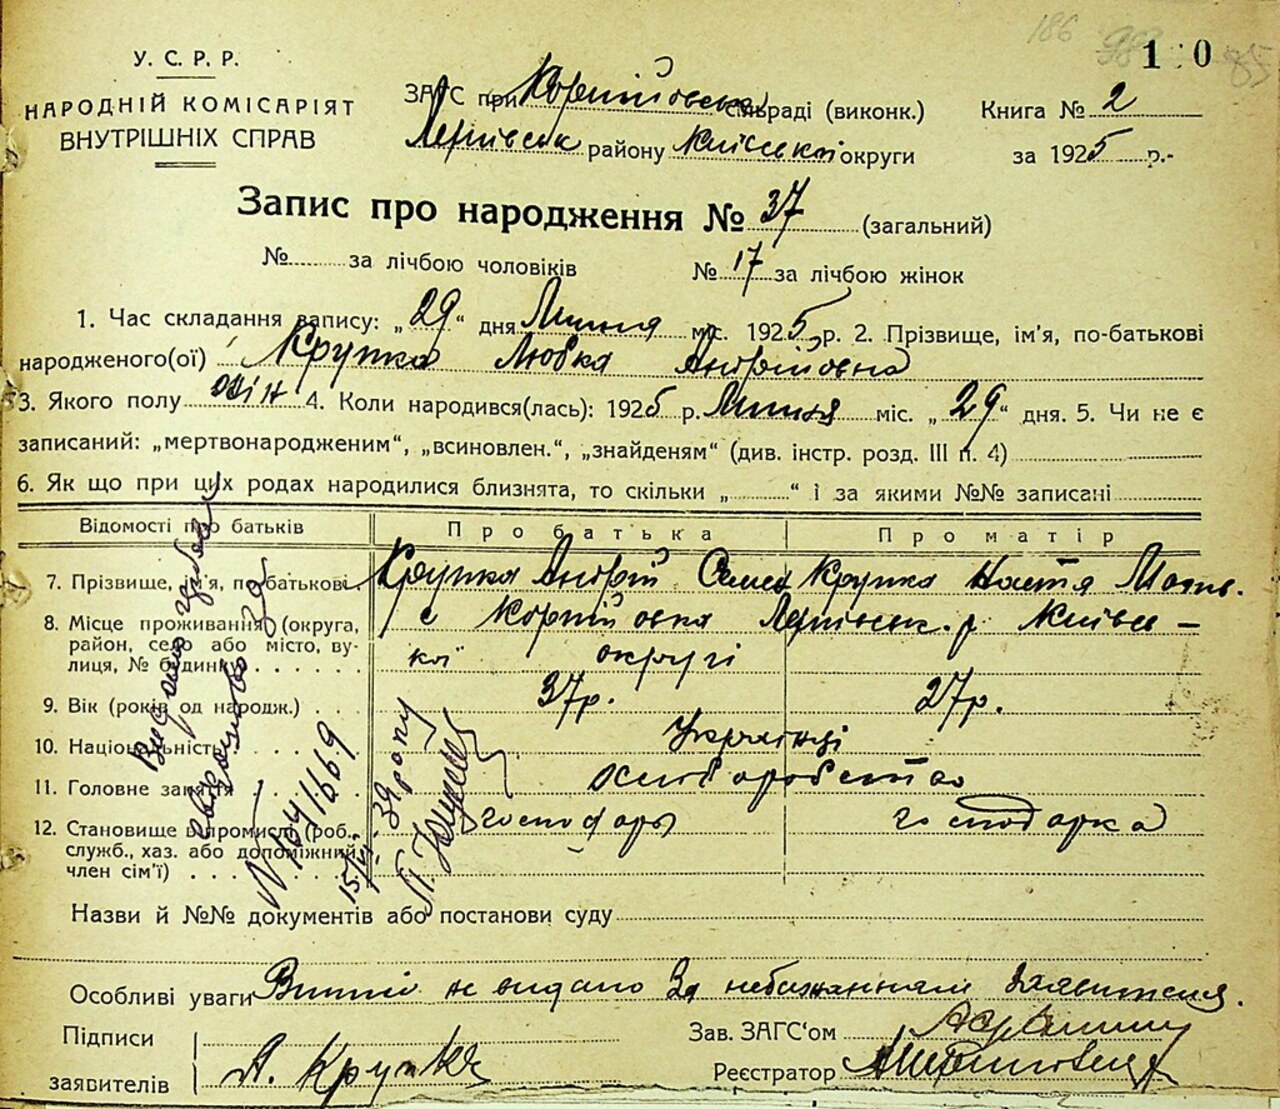 186
1 0
У. С. Р. Р.
НАРОДНІЙ КОМІСАРІЯТ
ВНУТРІШНІХ СПРАВ
ЗАГС при Корніївськ сільраді (виконк.)
району Київської округи
Книга № 2
за 1925 р.-
Запис про народження № 37 (загальний)
№ за лічбою чоловіків № 17 за лічбою жінок
1. Час складання запису: „29“ дня Липня міс. 1925 р. 2. Прізвище, ім'я, по-батькові
народженого(ої) Крупка Любка Андрійовна
3. Якого полу жін 4. Коли народився(лась): 1925 р. Липня міс. „29“ дня. 5. Чи не є
записаний: „мертвонародженим“, „всиновлен.“, „знайденям“ (див. інстр. розд. III п. 4)
6. Як що при цих родах народилися близнята, то скільки „ “ і за якими №№ записані
Відомості про батьків Про батька Про матір
7. Прізвище, ім'я, по-батькові Крупка Андрій Семен Крупка Настя Матв.
8. Місце проживання (округа, район, село або місто, вулиця, № будинку) с Корніївка р Київсь-
кої округі
9. Вік (років од народж.) 37р. 27р.
10. Національність Українці
11. Головне заняття хлиборобство
12. Становище в промислі (роб., господарь господарка
служб., хаз. або допоміжний
член сім'ї)
Видано
№ 041669
15/VI. 39 року
Назви й №№ документів або постанови суду
Особливі уваги не видано За небажанням заявителя.
Підписи
заявителів А. Крупка
Зав. ЗАГС'ом
Реєстратор